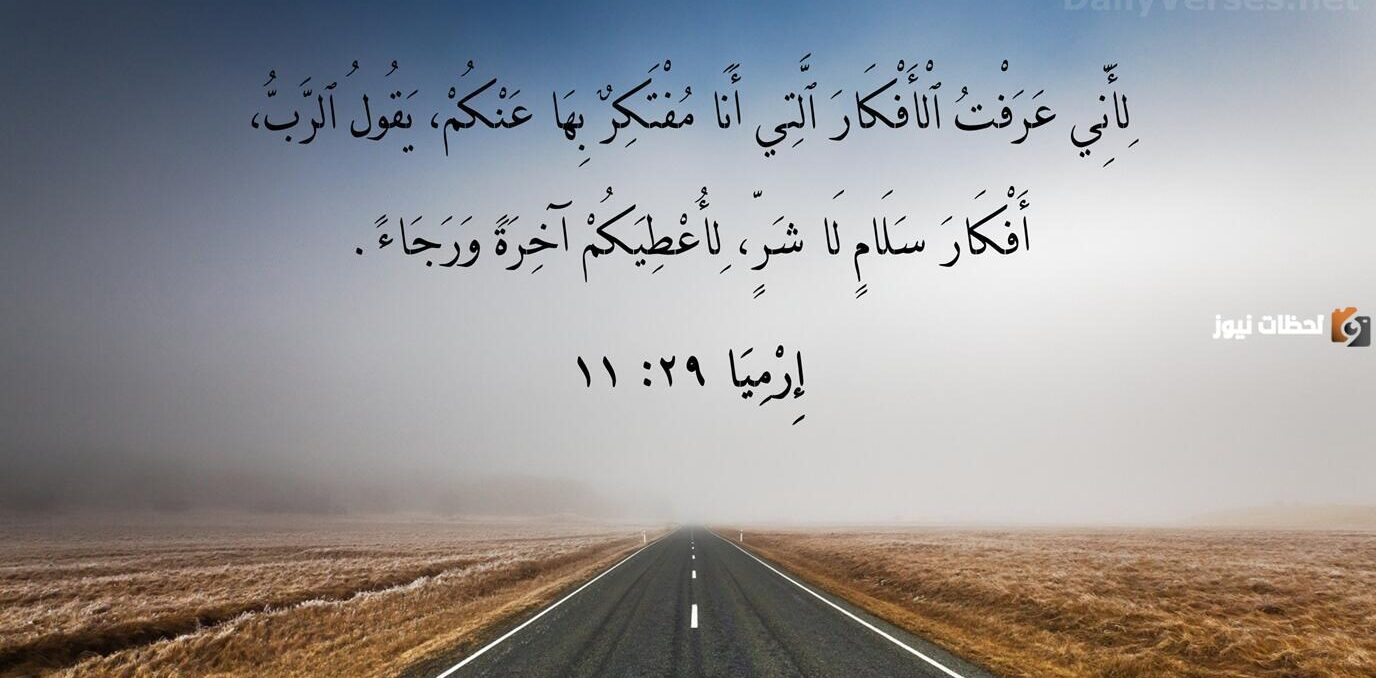 DailyVerses.net
لِأَنِّي عَرَفْتُ ٱلْأَفْكَارَ ٱلَّتِي أَنَا مُفْتَكِرٌ بِهَا عَنْكُمْ، يَقُولُ ٱلرَّبُّ،
أَفْكَارَ سَلَامٍ لَا شَرٍّ، لِأُعْطِيَكُمْ آخِرَةً وَرَجَاءً .
لحظات نيوز
إِرْمِيَا ٢٩: ١١